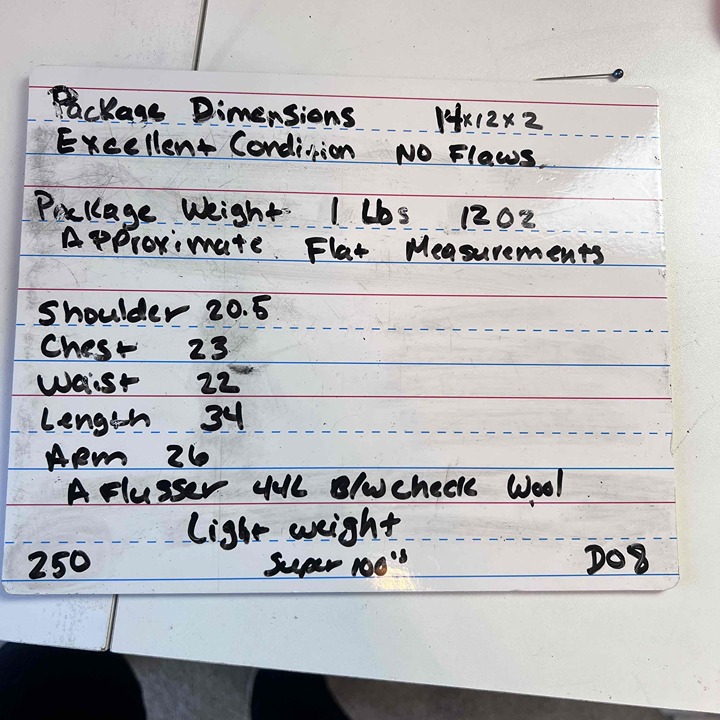 Package Dimensions 14x12x2
Excellent Condition NO Flaws
Package Weight 1 Lbs 12 oz
Approximate Flat Measurements
Shoulder 20.5
Chest 23
Waist 22
Length 34
Arm 26
A Flusser 44L B/W Check Wool
Light weight
250 Super 100's D08